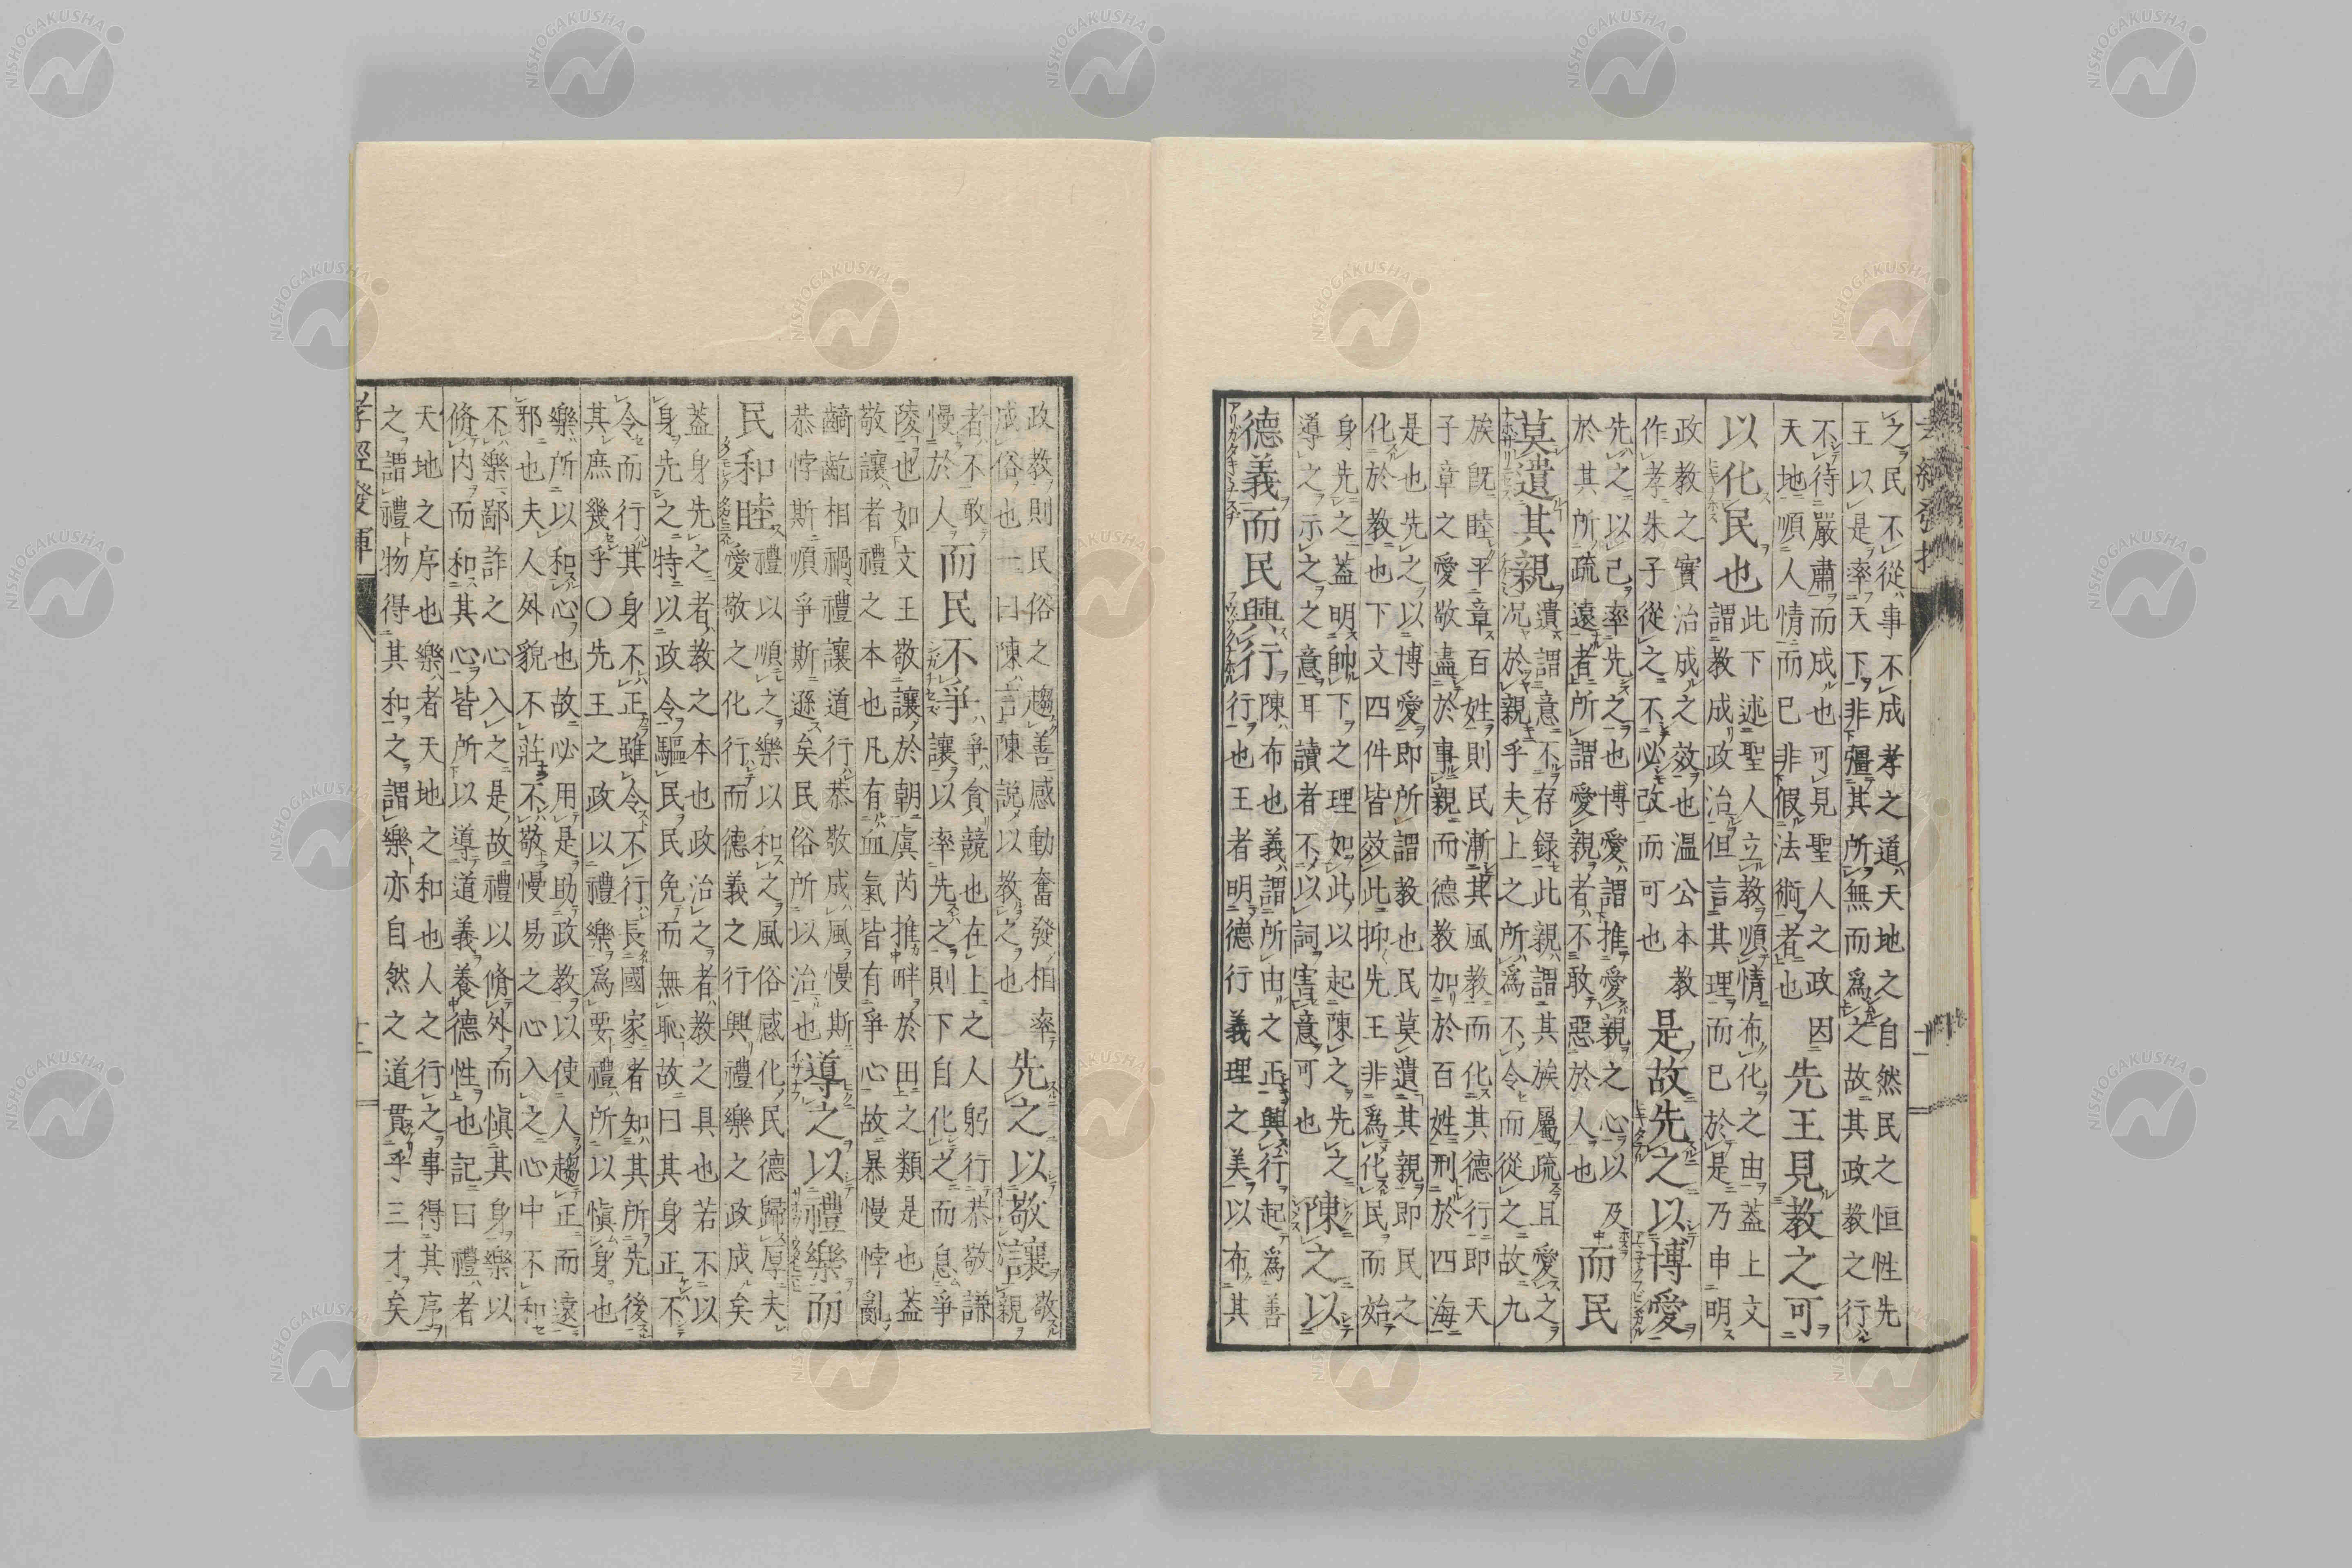 之民不從事不成孝之道天地之自然民之恒性先
王以是率天下非彊其所無而爲之故其政教之行
不待嚴肅而成也可見聖人之政因
天地順人情而已非假法術者也
先王見教之可
以化民也
此下述聖人立教順情布化之由蓋上文
謂教成政治但言其理而已於是乃申明
政教之實治成之效也温公本教
作孝朱子從之不必改而可也
是故先之以博愛
先之以己率先之也博愛謂推愛親之心以及
於其所疏遠者所謂愛親者不敢惡於人也
而民
莫遺其親
遺謂意不存録此親謂其族屬疏且愛之
况於親乎夫上之所爲不令而從之故九
族既睦平章百姓則民漸其風教而化其德行即天
子章之愛敬盡於事親而德教加於百姓刑於四海
是也先之以博愛即所謂教也民莫遺其親即民之
化於教也下文四件皆效此抑先王非爲化民而始
身先之蓋明帥下之理如此以起陳之先之
導之示之之意耳讀者不以詞害意可也
陳之以
德義而民興行
陳布也義謂所由之正興行起爲善
行也王者明德行義理之美以布其
政教則民俗之趨善感動奮發相率
成俗也一曰陳言陳說以教之也
先之以敬讓
敬親
者不敢
慢於人
而民不爭
爭貪競也在上之人躬行恭敬謙
讓以率先之則下自化之而息爭
陵也如文王敬讓於朝虞芮推畔於田之類是也蓋
敬讓者禮之本也凡有血氣皆有爭心故暴慢悖亂
齮齕相禍禮讓道行恭敬成風慢斯
恭悖斯順爭斯遜矣民俗所以治也
導之以禮樂而
民和睦
禮以順之樂以和之風俗感化民德歸厚夫
愛敬之化行而德義之行興禮樂之政成矣
蓋身先之者教之本也政治之者教之具也若不以
身先之特以政令驅民民免而無恥故曰其身正不
令而行其身不正雖令不行長國家者知其所先後
其庶幾乎〇先王之政以禮樂爲要禮所以愼身也
樂所以和心也故必用是助政教以使人趨正而遠
邪也夫人外貌不莊不敬慢易之心入之心中不和
不樂鄙詐之心入之是故禮以脩外而愼其身樂以
脩内而和其心皆所以導道義養德性也記曰禮者
天地之序也樂者天地之和也人之行之事得其序
之謂禮物得其和之謂樂亦自然之道貫乎三才矣
孝經發揮